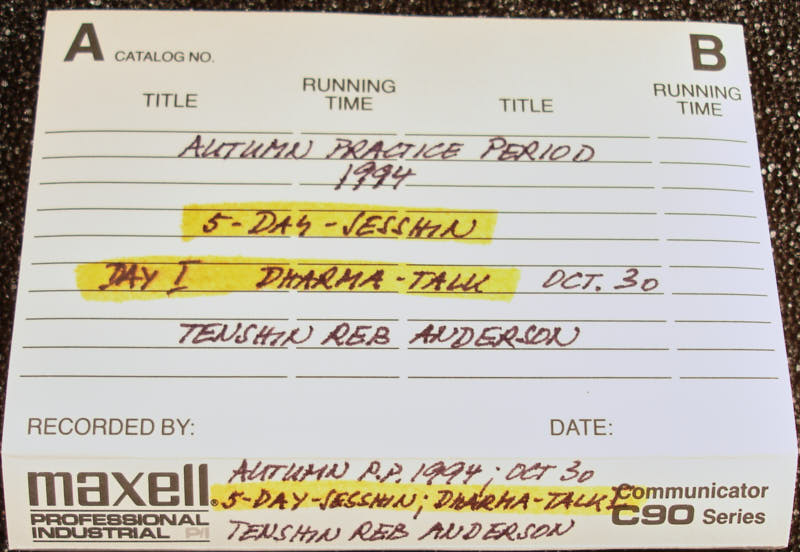 A CATALOG NO. B
TITLE RUNNING TIME TITLE RUNNING TIME
AUTUMN PRACTICE PERIOD
1994
5-DAY-SESSHIN
DAY I DHARMA-TALK OCT. 30
TENSHIN REB ANDERSON
RECORDED BY: DATE:
maxell®
PROFESSIONAL
INDUSTRIAL P/I
AUTUMN P.P. 1994; OCT 30
5-DAY-SESSHIN; DHARMA-TALK I
TENSHIN REB ANDERSON
Communicator
C90 Series